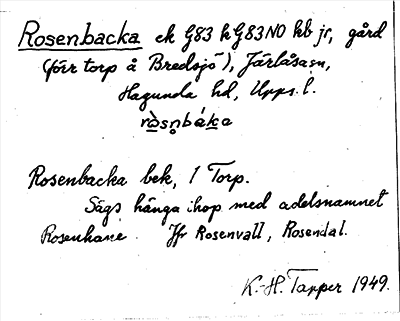 Rosenbacka ek G83 h G83NO hb jr, gård
(förr torp å Bredsjö), Järlåsa sn,
Hagunda hd, Upps. l.
ròsn̥báka
Rosenbacka bek, 1 Torp.
Sägs hänga ihop med adelsnamnet
Rosenhane. Jfr Rosenvall, Rosendal.
K.-H. Tapper 1949.